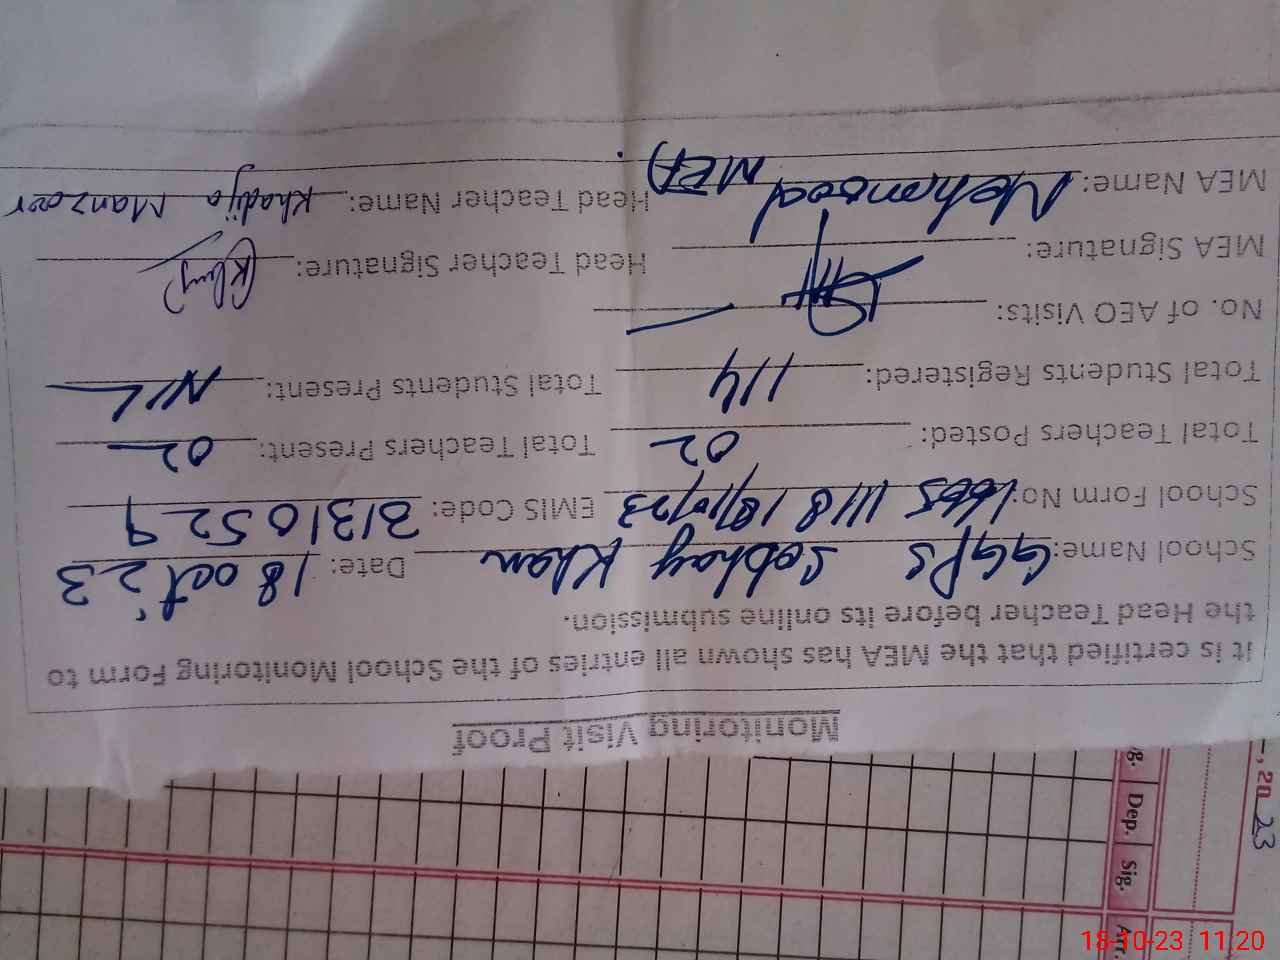 Monitoring Visit Proof
It is certified that the MEA has shown all entries of the School Monitoring Form to
the Head Teacher before its online submission.
School Name: GGPS Sobhay Khan Date: 18 oct' 23
School Form No: 18/10/23 EMIS Code: 31310529
Total Teachers Posted: 02 Total Teachers Present: 02
Total Students Registered: 114 Total Students Present: NIL
No. of AEO Visits: —
MEA Signature: Head Teacher Signature:
MEA Name: Mehmood (MEA) Head Teacher Name: Khadija Manzoor
, 20 23
Dep. Sig. Arr.
18-10-23 11.20